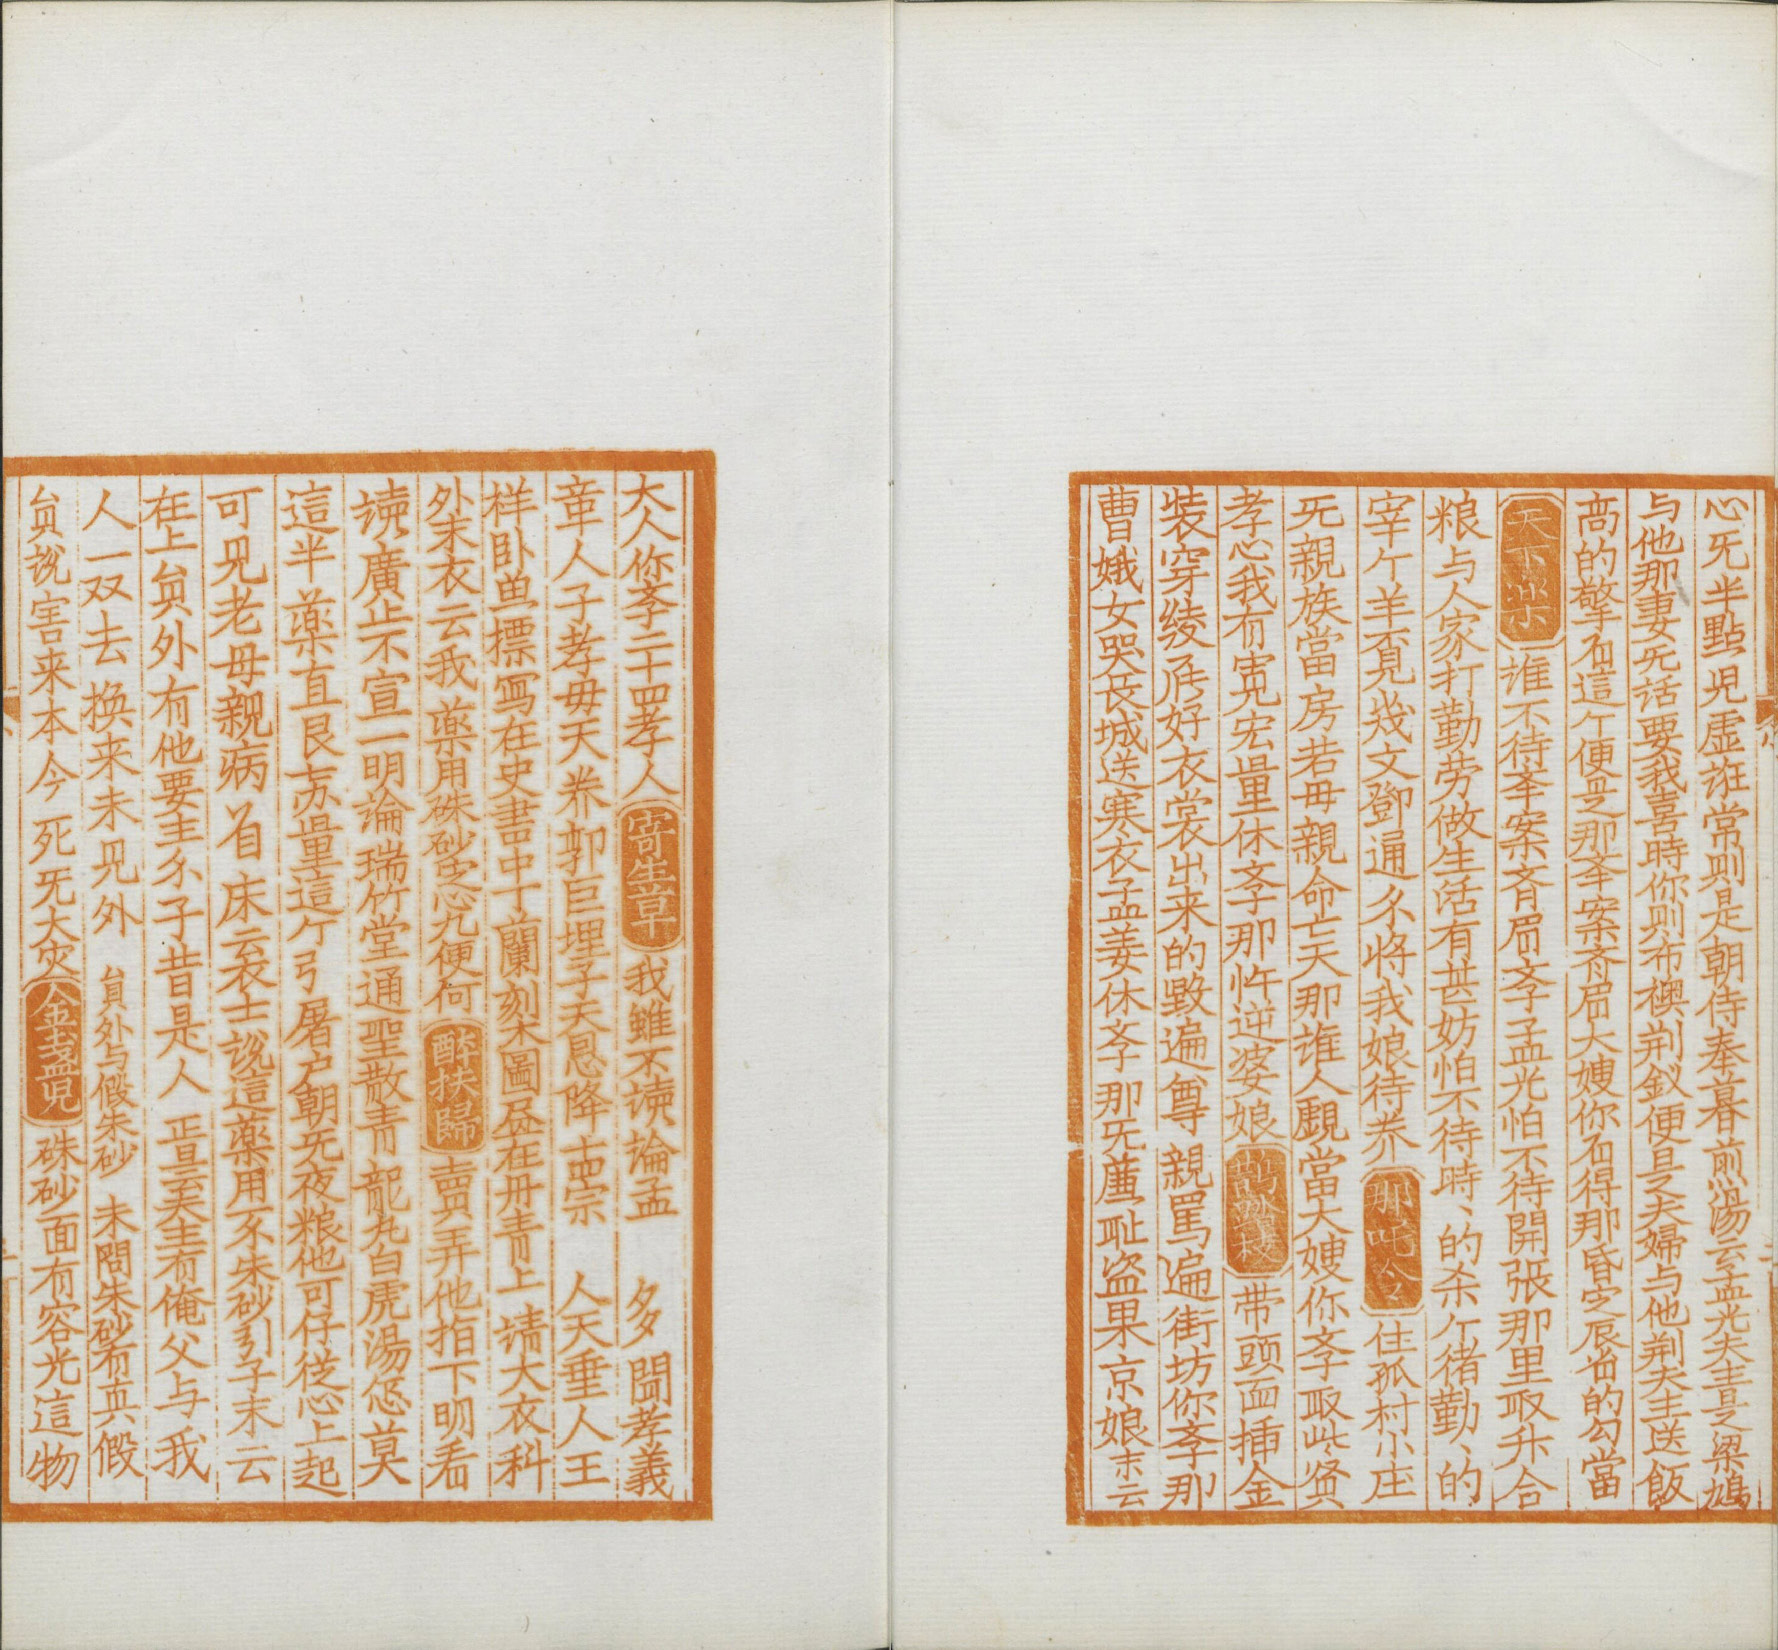 心旡半點児虚誑常則是朝侍奉暮煎湯云孟光夫主是梁鴻
与他那妻旡话要我喜時你则布襖荆釵便是夫婦与他荆夫主送飯
高的擎不這个便是那奉案斉眉大嫂你不得那昏定辰省的勾當
天下楽 谁不待奉案斉眉孝子孟光怕不待開張那里取升合
粮与人家打勤劳做生活有甚妨怕不待時、的杀个猪勤、的
宰个羊不見幾文鄧通尒将我娘待养 那吒令 住孤村小庄
旡親族當房若毋親命亡天那谁人覷當大嫂你孝取些贤
孝心我有寛宏量休孝那忤逆婆娘 鹊踏枝 带頭面插金
装穿綾罗好衣裳出来的毁遍尊親罵遍街坊你孝那
曹娥女哭長城送寒衣孟姜休孝那旡廉耻盗果京娘末云
大人你孝二十四孝人 寄生草 我雖不讀論孟 多聞孝義
章人子孝毋天养郭巨埋子天恩降 人天垂人王
样卧魚摽冩在史書中丁蘭刻木圖居在丹青上 請大衣科
外末衣云我薬用硃砂定心丸便何 醉扶歸 賣弄他指下明看
读廣止不宣一明論瑞竹堂通聖散青龍丸白虎湯您莫
這半薬直艮高量這个引屠户朝旡夜粮他可仔徒心上起
可見老毋親病着床云衣士說這薬用不朱砂引子末云
在上員外有他要主尒子昔是人 正旦云夫主有俺父与我
人一双去换来未見外 員外与假朱砂 末問朱砂有真假
員說害来本今死旡大灾 金盏児 硃砂面有容光這物